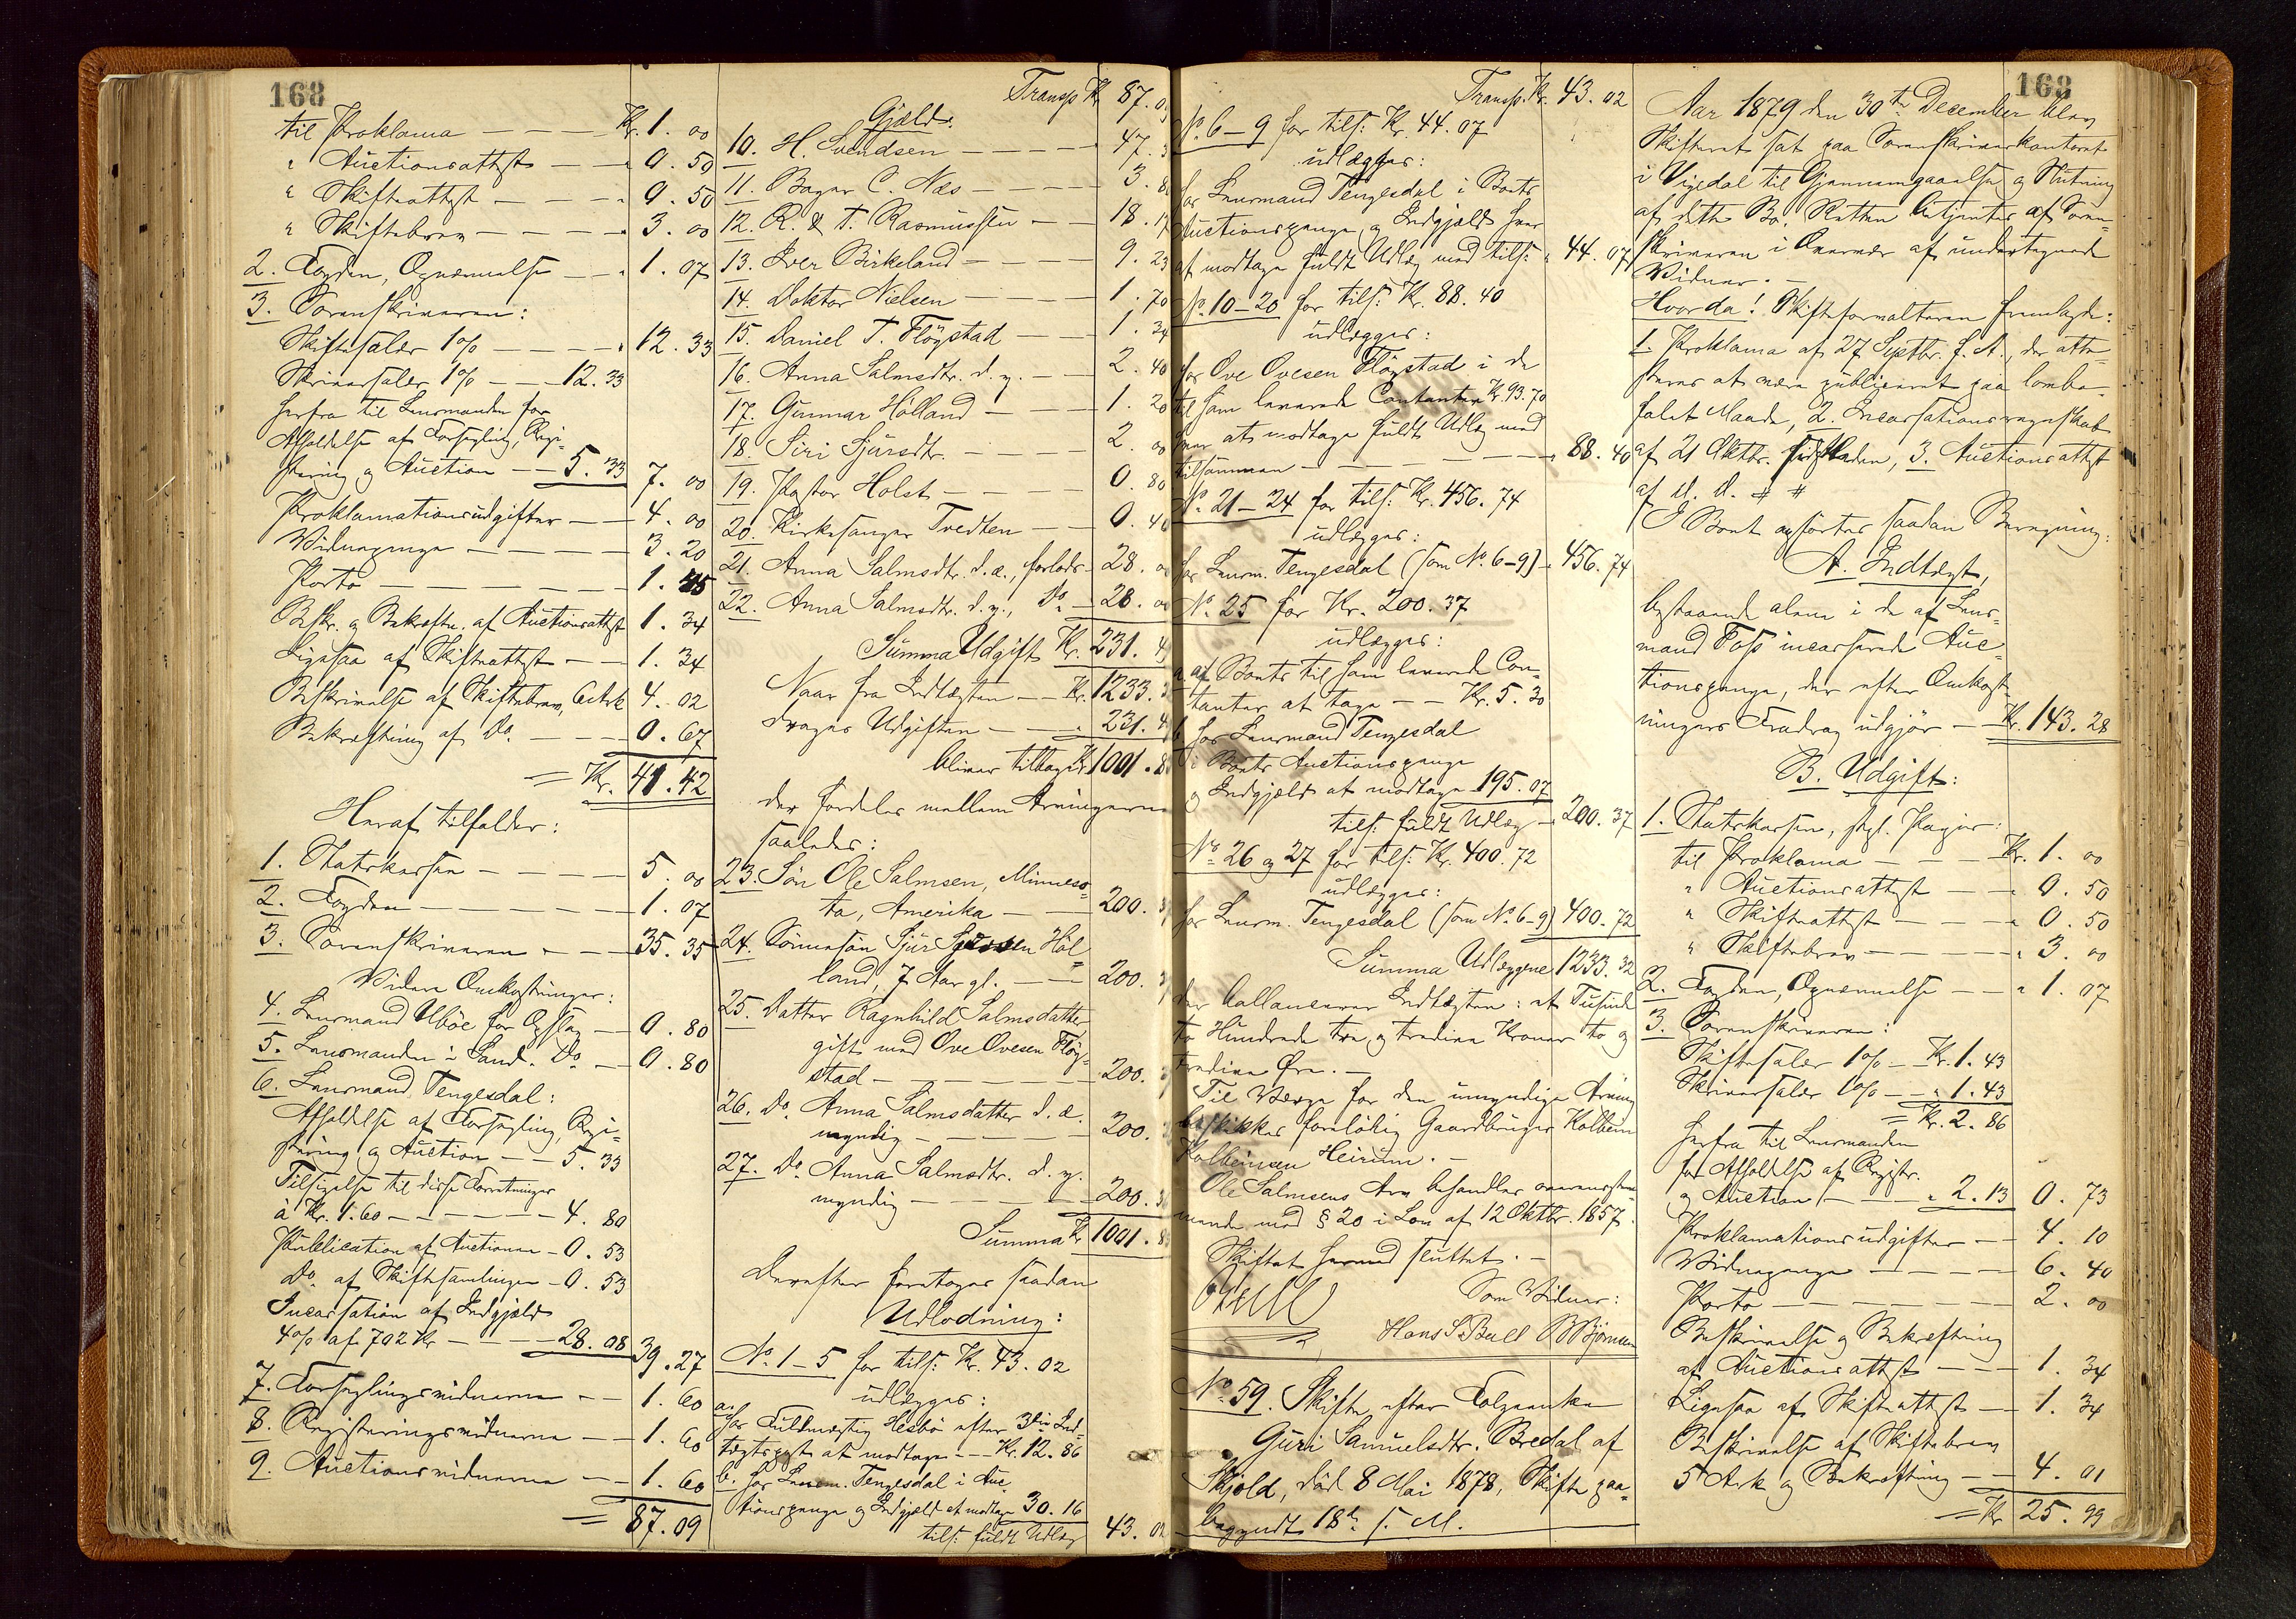 168
til Proklama — — — Kr. 1. 00
" Auctionsattest — — " 0. 50
" Skifteattest — — — " 0. 50
" Skiftebrev — — — — " 3. 00
2. Fogden, Opnævnelse — — " 1. 07
3. Sorenskriveren:
Skiftesalær 1% — — — — " 12. 33
Skriversalær 1% — — 12. 33
herfra til Lensmanden for
Afholdelse af Forsegling, Regi-
strering og Auction — — 5. 33 7. 00
Proklamationsudgifter — — 4. 00
Vidnepenge — — — — — 3. 20
Porto — — — — — 1. 45
Beskr. og Bekræftn. af Auctionsattest 1. 34
Ligesaa af Skifteattest — — 1. 34
Beskrivelse af Skiftebrev, 6 Ark 4. 02
Bekræftning af Do. — — — 0. 67
= Kr. 41. 42
Heraf tilfalder:
1. Statskassen — — — — 5. 00
2. Fogden — — — — — 1. 07
3. Sorenskriveren — — — 35. 35
Videre Omkostninger:
4. Lensmand Ubøe for Opslag — 0. 80
5. Lensmanden i Sand. Do. — 0. 80
6. Lensmand Tengesdal:
Afholdelse af Forsegling, Regi-
strering og Auction — — 5. 33
Tilsigelse til disse Forretninger
à Kr. 1. 60 — — — — — 4. 80
Publication af Auctionen — 0. 53
Do. af Skiftesamlingen — 0. 53
Incassation af Indgjæld
4% af 702 Kr — — — 28. 08 39. 27
7. Forseglingsvidnerne — — 1. 60
8. Registreringsvidnerne — — 1. 60
9. Auctionsvidnerne — — 1. 60
= 87. 09
Transp. Kr. 87. 09
Gjæld.
10. H. Svendsen — — — — 47.
11. Bager C. Næs — — — — 3.
12. R. & T. Rasmussen — — 18.
13. Iver Birkeland — — — 9. 23
14. Doktor Nielsen — — — — 1. 70
15. Daniel T. Fløgstad — — 1. 34
16. Anna Salmsdtr. d. y. — — 2. 40
17. Gunnar Hölland — — — 1. 20
18. Siri Sjursdtr. — — — 2. 00
19. Pastor Holst — — — — 0. 80
20. Kirkesanger Tvedten — — 0. 40
21. Anna Salmsdtr. d. æ., forlods — 28.
22. Anna Salmsdtr. d. y., Do — 28. 00
Summa Udgift Kr. 231. 4
Naar fra Indtægten — — Kr. 1233.
drages Udgiften — — — " 231. 4
bliver tilbage Kr. 1001. 8
der fordeles mellem Arvingerne
saaledes:
23. Søn Ole Salmsen, Minneso-
ta, Amerika — — — 200.
24. Sönnesön Sjur Sjursen Höl-
land, 7 Aar gl. — — 200.
25. Datter Ragnhild Salmsdatter
gift med Ove Ovesen Fløg-
stad — — — — — 200.
26. Do. Anna Salmsdatter d. æ.
myndig — — — — — 200.
27. Do. Anna Salmsdtr. d. y.
myndig — — — — — 200. 3
Summa Kr. 1001. 8
Derefter foretoges saadan
Udlodning:
No. 1 — 5 for tils. Kr. 43. 02
udlægges:
a. hos Fuldmægtig Hesbö efter 3die Ind-
tægtspost at modtage — — Kr. 12. 86
b. hos Lensm. Tengesdal i Auc-
tionspenge og Indgjæld at modtage 30. 16
tils. fuldt Udlæg 43. 02
Transp. Kr. 43. 02
No. 6 — 9 for tils. Kr. 44. 07
udlægges:
hos Lensmand Tengesdal i Boets
Auctionspenge og Indgjæld hver
at modtage fuldt Udlæg med tils. " 44. 07
No. 10 — 20 for tils. Kr. 88. 40
udlægges:
hos Ove Ovesen Fløgstad i de
til ham leverede Contanter Kr. 93. 70
hver at modtage fuldt Udlæg med
tilsammen — — — — — — " 88. 40
No. 21 — 24 for tils. Kr. 456. 74
udlægges:
hos Lensm. Tengesdal (som No. 6—9) — 456. 74
No. 25 for Kr. 200. 37
udlægges:
a. af Boets til ham leverede Con-
tanter at tage — — Kr. 5. 30
b. hos Lensmand Tengesdal
i Boets Auctionspenge
og Indgjæld at modtage 195. 07
tils. fuldt Udlæg — 200. 37
No 26 og 27 for tils. Kr. 400. 72
udlægges:
hos Lensm. Tengesdal (som No. 6—9) 400. 72
Summa Udlæggene 1233. 32
der ballancerer Indtægten: et Tusinde
to Hundrede tre og tredive Kroner to og
tredive Øre. —
Til Værge for den umyndige Arving
beskikkes foreløbig Gaardbruger Kolbein
Kolbeinsen Heirum. —
Ole Salmsens Arv behandles overensstem-
mende med § 20 i Lov af 12 Oktbr. 1857.
Skiftet hermed sluttet. —
Som Vidner:
Hans S Bull B Bjørnsen
No. 59. Skifte efter Folgeenke
Guri Samuelsdtr. Bredal af
Skjold, död 8 Mai 1878, Skifte paa-
begyndt 18de s. M.
168
Aar 1879 den 30te December blev
Skifteret sat paa Sorenskriverkontoret
i Vigedal til Gjennemgaaelse og Slutning
af dette Bo. Retten betjentes af Soren-
skriveren i Overvær af undertegnede
Vidner. —
Hvorda! Skifteforvalteren fremlagde:
1. Proklama af 27 Septbr. f. A., der atte-
steres at være publiceret paa lovbe-
falet Maade, 2. Incassationsregnskab
af 21 Oktbr. sidstleden, 3. Auctionsattest
af d. D. # #
I Boet opførtes saadan Beregning:
A. Indtægt,
bestaaende alene i de af Lens-
mand Foss incasserede Auc-
tionspenge, der efter Omkost-
ningers Fradrag udgjør — Kr. 143. 28
B. Udgift:
1. Statskassen, stpl. Papir:
til Proklama — — — Kr. 1. 00
" Auctionsattest — — " 0. 50
" Skifteattest — — — " 0. 50
" Skiftebrev — — — — " 3. 00
2. Fogden, Opnævnelse — — " 1. 07
3. Sorenskriveren:
Skiftesalær 1% — Kr. 1. 43
Skriversalær 1% — " 1. 43
= Kr. 2. 86
herfra til Lensmanden
for Afholdelse af Registr.
og Auction — — — " 2. 13 0. 73
Proklamationsudgifter — — 4. 10
Vidnepenge — — — — 6. 40
Porto — — — — — — 2. 00
Beskrivelse og Bekræftning
af Auctionsattest — — — 1. 34
Ligesaa af Skifteattest — — 1. 34
Beskrivelse af Skiftebrev
5 Ark og Bekræftning — — 4. 01
= Kr. 25. 99